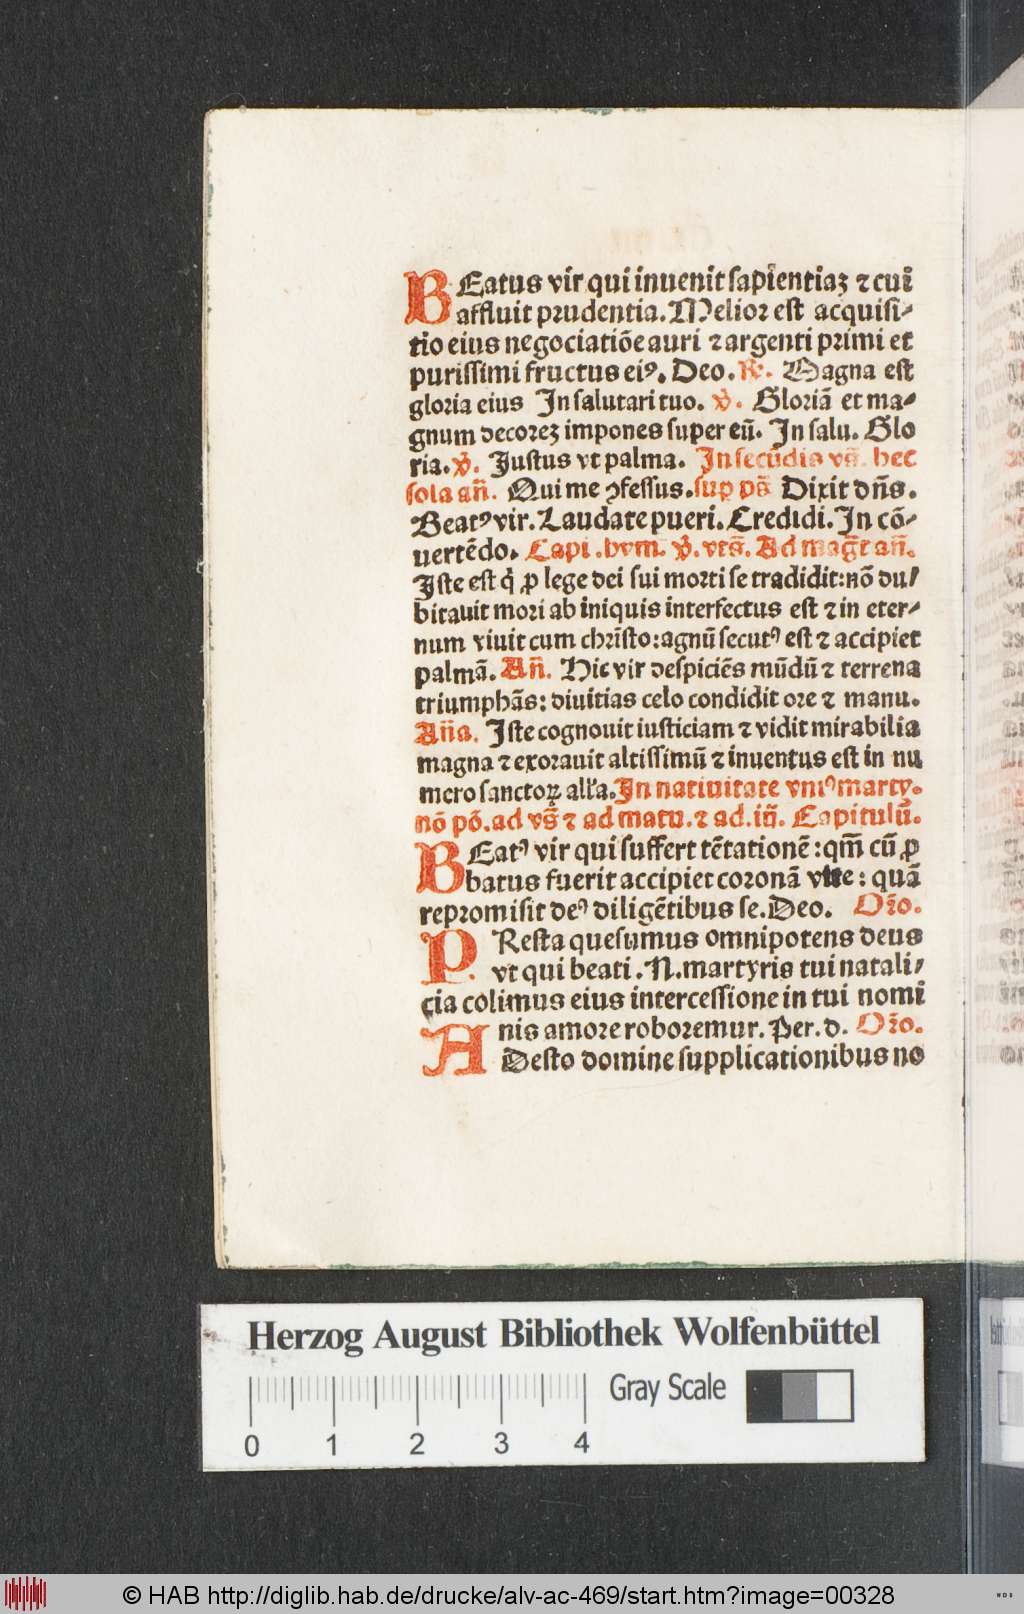 BEatus vir qui inuenit sapientiaꝫ ⁊ cui
affluit prudentia. Melior est acquisi-
tio eius negociatiōe auri ⁊ argenti primi et
purissimi fructus eiꝰ. Deo. ℟. Magna est
gloria eius In salutari tuo. ℣. Gloriā et ma-
gnum decoreꝫ impones super eū. In salu. Glo
ria. ℣. Justus vt palma. In secūdis vs̄. hec
sola an̄. Qui me ꝯfessus. sup ps̄ Dixit dn̄s.
Beatꝰ vir. Laudate pueri. Credidi. In cō-
uertēdo. Capi. hym̄. ℣. vts̄. Ad magt̄ an̄.
Iste est q̇ ꝓ lege dei sui morti se tradidit: nō du-
bitauit mori ab iniquis interfectus est ⁊ in eter-
num viuit cum chr̄isto: agnū secutꝰ est ⁊ accipiet
palmā. An̄. Hic vir despiciēs mūdū ⁊ terrena
triumphās: diuitias celo condidit ore ⁊ manu.
An̄a. Iste cognouit iusticiam ⁊ vidit mirabilia
magna ⁊ exorauit altissimū ⁊ inuentus est in nu
mero sanctoꝝ all'a. In natiuitate vniꝰ marty.
nō pō. ad vs̄ ⁊ ad matu. ⁊ ad. in̄. Capitulū.
BEatꝰ vir qui suffert tētationē: qm̄ cū ꝓ
batus fuerit accipiet coronā vite: quā
repromisit deꝰ diligētibus se. Deo. Or̄o.
PResta quesumus omnipotens deus
vt qui beati. N. martyris tui natali-
cia colimus eius intercessione in tui nomi
nis amore roboremur. Per. d. Or̄o.
ADesto domine supplicationibus no
Herzog August Bibliothek Wolfenbüttel
Gray Scale
0 1 2 3 4
© HAB http://diglib.hab.de/drucke/alv-ac-469/start.htm?image=00328